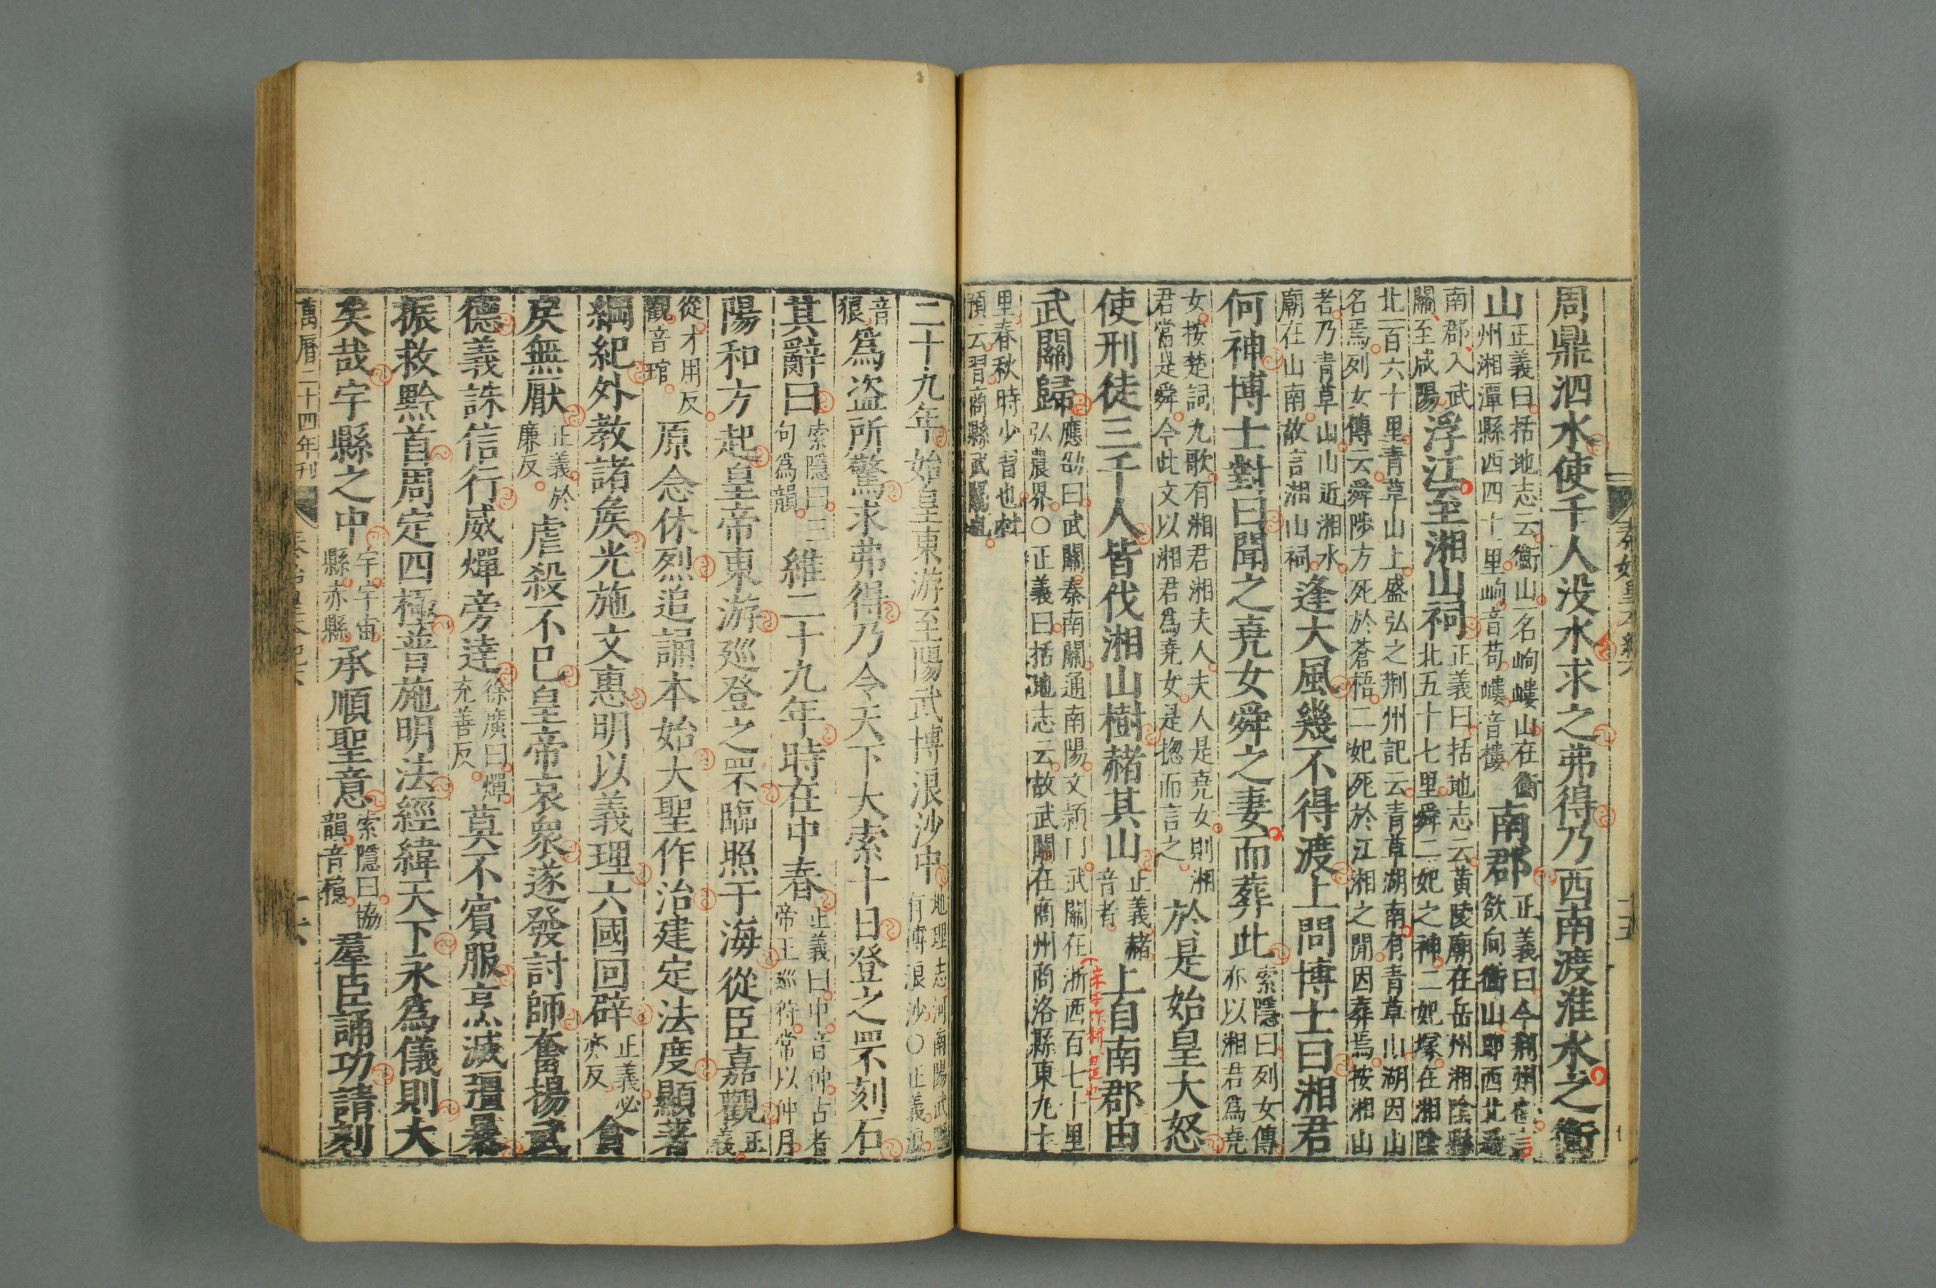 周鼎泗水使千人没水求之弗得乃西南渡淮水之衡
山
正義曰括地志云衡山一名岣嶁山在衡
州湘潭縣西四十里岣音苟嶁音樓
南郡
正義曰今荆州也言
欲向衡山即西北過
南郡入武
關至咸陽
浮江至湘山祠
正義曰括地志云黄陵廟在岳州湘隂縣
北五十七里舜二妃之神二妃塚在湘隂
北一百六十里青草山上盛弘之荆州記云青草湖南有青草山湖因山
名焉列女傳云舜陟方死於蒼梧二妃死於江湘之間因葬焉按湘山
者乃青草山山近湘水
廟在山南故言湘山祠
逢大風幾不得渡上問博士曰湘君
何神博士對曰聞之堯女舜之妻而葬此
索隱曰列女傳
亦以湘君爲堯
女按楚詞九歌有湘君湘夫人夫人是堯女則湘
君當是舜今此文以湘君爲堯女是揔而言之
於是始皇大怒
使刑徒三千人皆伐湘山樹赭其山
正義赭
音者
上自南郡由
武關歸
應劭曰武關秦南關通南陽文頴曰武關在浙西百七十里
弘農界○正義曰括地志云故武關在商州商洛縣東九十
里春秋時少習也杜
預云習商縣武關也
秦始皇本紀六
十五
二十九年始皇東游至陽武博浪沙中
地理志河南陽武縣
有博浪沙○正義浪
音
狼
爲盗所驚求弗得乃令天下大索十日登之罘刻石
其辭曰
索隱曰三
句爲韻
維二十九年時在中春
正義曰中音仲古者
帝王巡狩常以仲月
陽和方起皇帝東游巡登之罘臨照于海從臣嘉觀
正
義
從才用反
觀音琯
原念休烈追誦本始大聖作治建定法度顯著
綱紀外教諸矦光施文惠明以義理六國回辟
正義必
亦反
貪
戾無厭
正義於
廉反
虐殺不已皇帝哀衆遂發討師奮揚武
德義誅信行威燀旁達
徐廣曰燀
充善反
莫不賓服烹滅彊暴
振救黔首周定四極普施明法經緯天下永爲儀則大
矣哉宇縣之中
宇宇宙
縣赤縣
承順聖意
索隱曰協
韻音憶
羣臣誦功請刻
萬曆二十四年刊